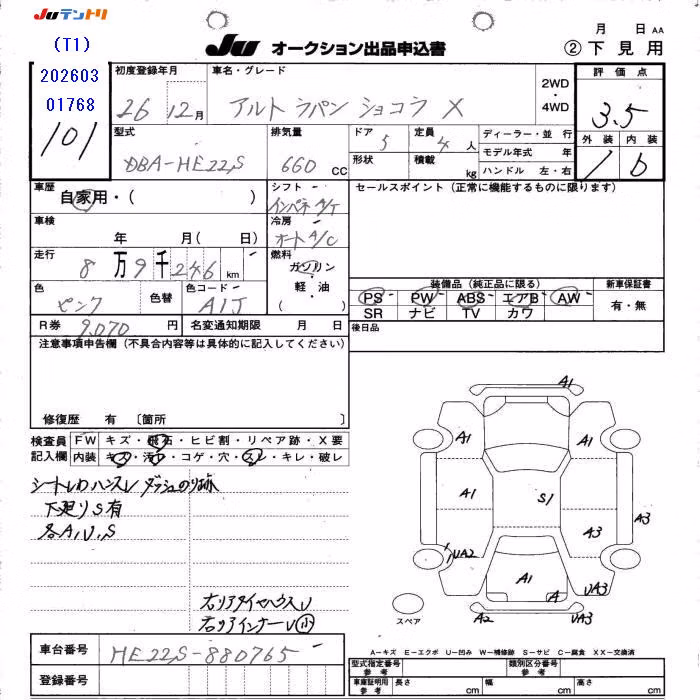 JUテントリ
(T1)
202603
01768
101
JU オークション出品申込書
月 日 AA
② 下見用
初度登録年月
26 12月
車名・グレード
アルト ラパン ショコラ X
2WD
・
4WD
評価点
3.5
外装 内装
1 b
型式
DBA-HE22S
排気量
660 CC
ドア 5
形状
定員 4 人
積載 kg
ディーラー・並 行
モデル年式 年
ハンドル 左・右
車歴
自家用・( )
シフト
インパネ A/T
セールスポイント (正常に機能するものに限ります)
車検
年 月( 日)
冷房
オート A/C
走行
8万9千246 km
燃料
ガソリン
・
軽・油
( )
色
ピンク
色替
色コード
A1J
装備品 (純正品に限る)
新車保証書
PS PW ABS エアB AW
SR ナビ TV カワ
有・無
R券 9,070 円
名変通知期限 月 日
後日品
注意事項申告欄 (不具合内容等は具体的に記入してください)
修復歴 有 〔箇所 〕
検査員
記入欄
FW キズ・飛石・ヒビ割・リペア跡・X要
内装 キズ・汚れ・コゲ・穴・スレ・キレ・破レ
シートしわ ハンスレ ダッシュのり跡
下廻りS有
各A,U,S
右リアタイヤハウスU
右リアインナーU(小)
A1
A1
A1
A1
S1
A3
A3
UA2
A1
A
UA3
A2
UA3
スペア
車台番号
HE22S-880765
登録番号
A－キズ E－エクボ U－凹み W－補修跡 S－サビ C－腐食 XX－交換済
型式指定番号
参考
類別区分番号
参考
車庫証明用
参考
長さ cm
幅 cm
高さ cm